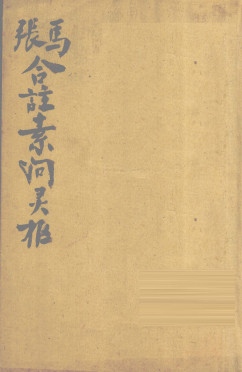 馬張合註素問灵枢